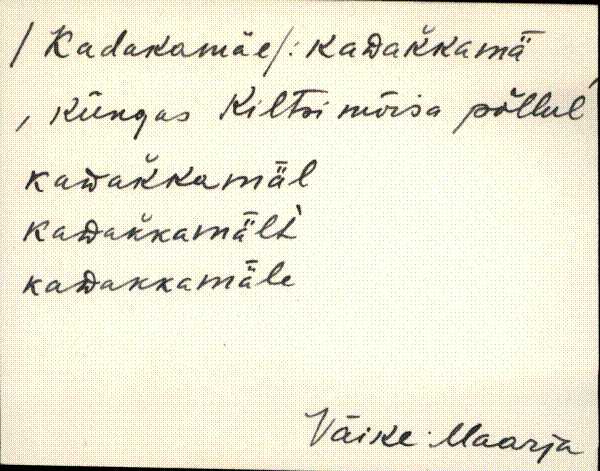 /Kadakamäe/: kaᴅak̆kamä̆
, küngas Kiltsi mõisa põllul'
kaᴅak̆kamǟl
kaᴅak̆kamǟlt̀
kaᴅakkamǟle
Väike-Maarja